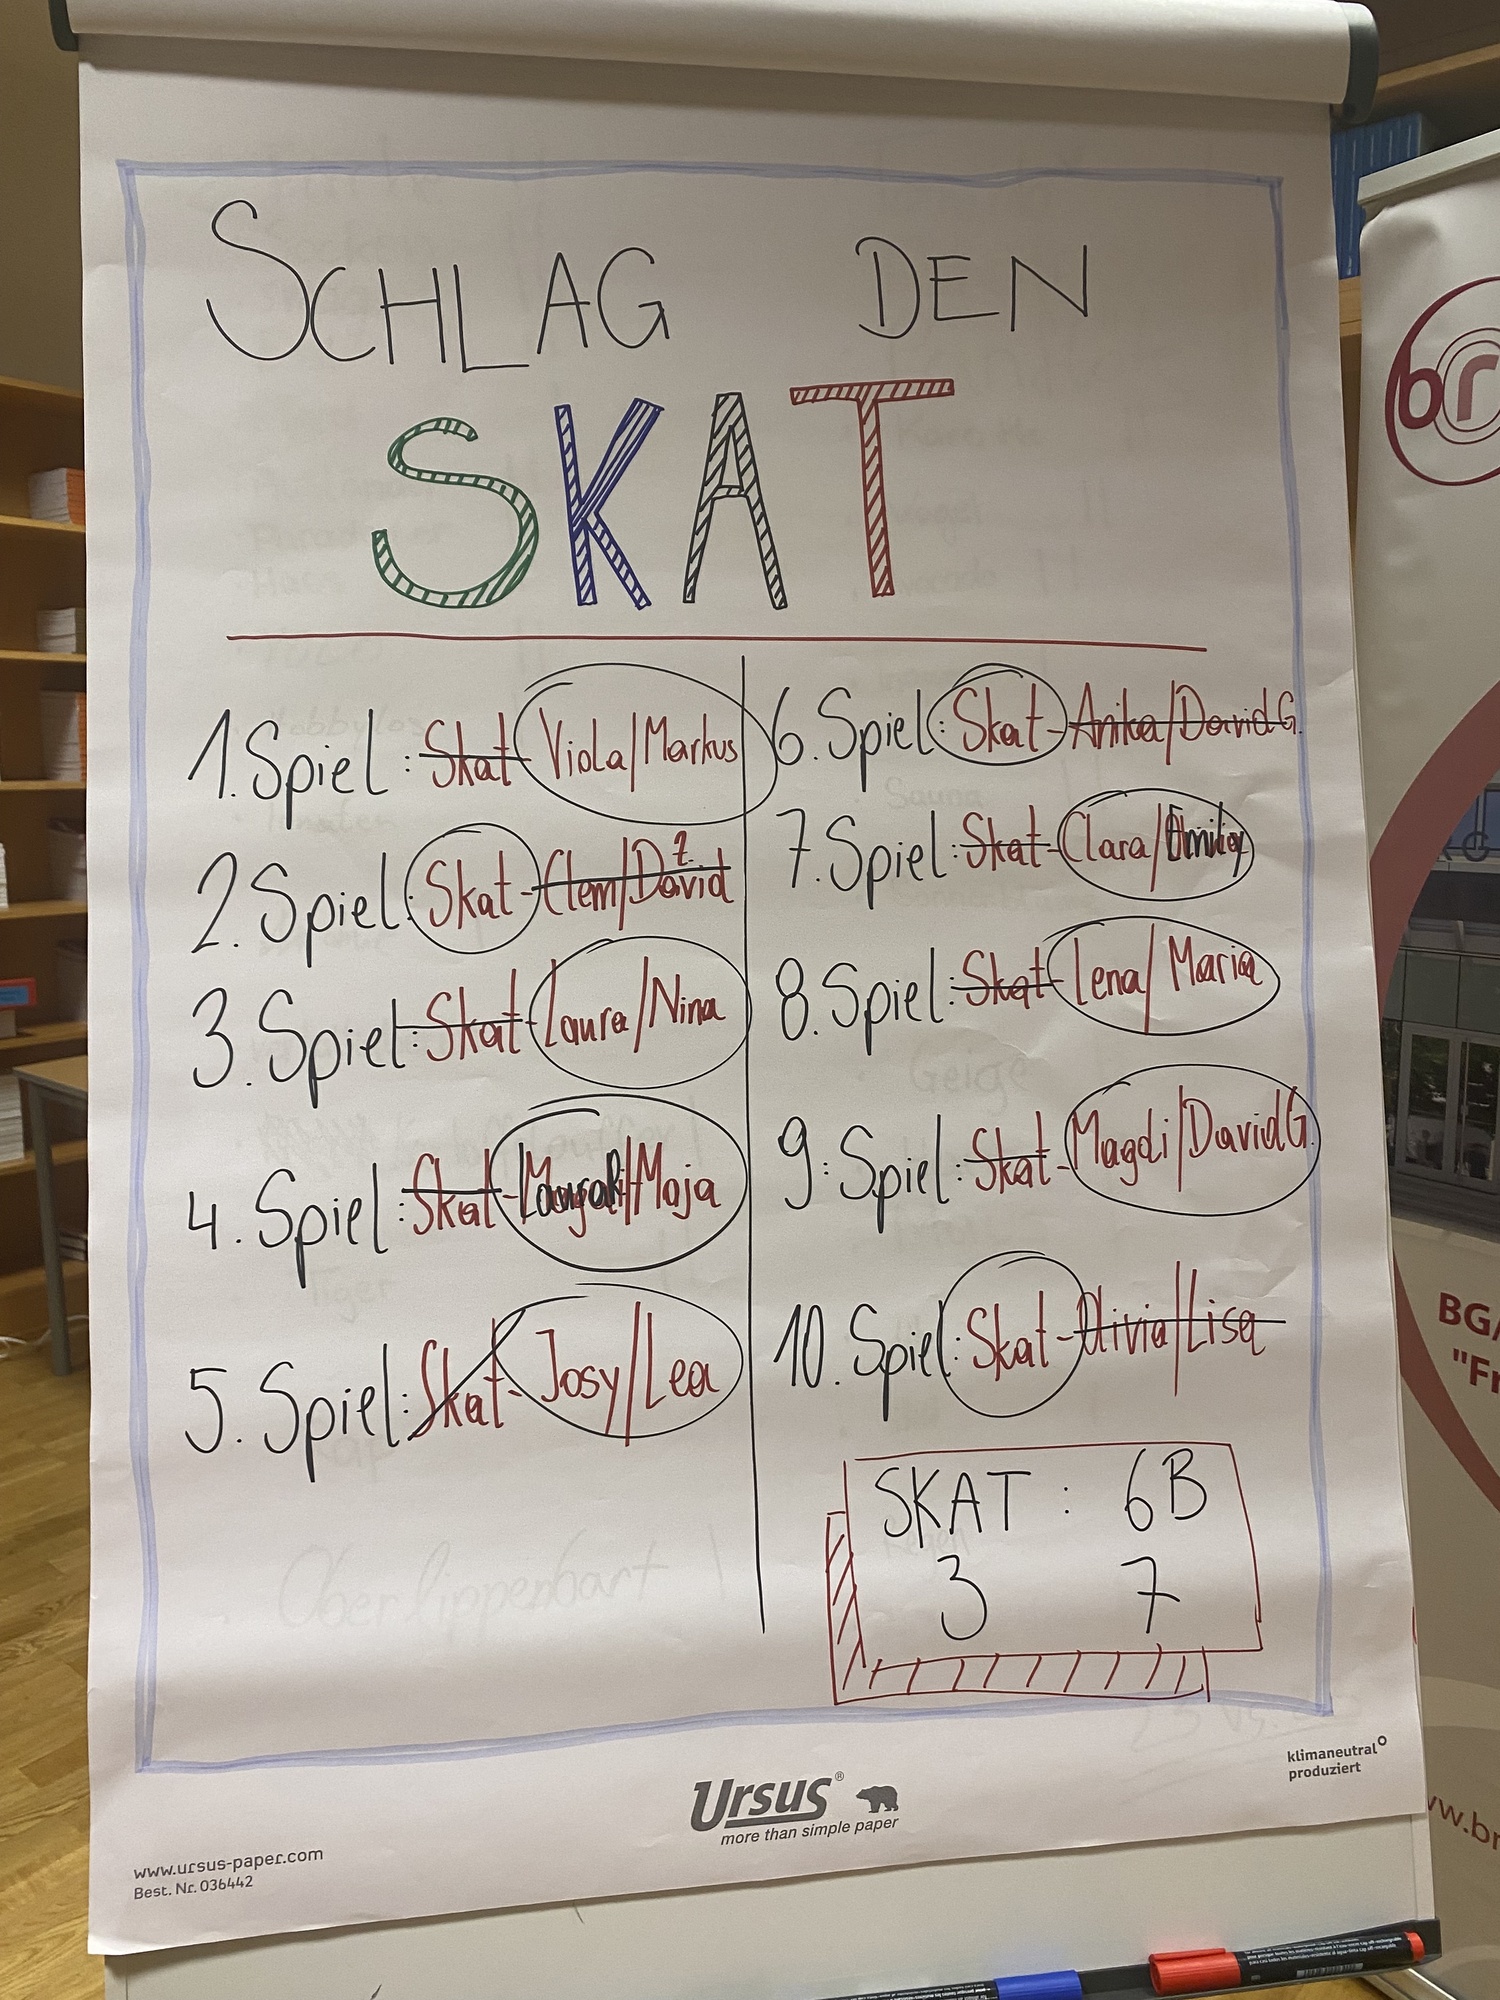 SCHLAG DEN
SKAT
1. Spiel: Skat - Viola/Markus
2. Spiel: Skat - Clem/David Z.
3. Spiel: Skat - Laura/Nina
4. Spiel: Skat - LauraR/Maja
5. Spiel: Skat - Josy/Lea
6. Spiel: Skat - Anika/David G.
7. Spiel: Skat - Clara/Emily
8. Spiel: Skat - Lena/Maria
9. Spiel: Skat - Magdi/David G.
10. Spiel: Skat - Olivia/Lisa
SKAT : 6B
3 7
Oberlippenbart
Geige
Tiger
Sauna
klimaneutral
produziert
Ursus®
more than simple paper
www.ursus-paper.com
Best. Nr. 036442
br
BG/
"Fr